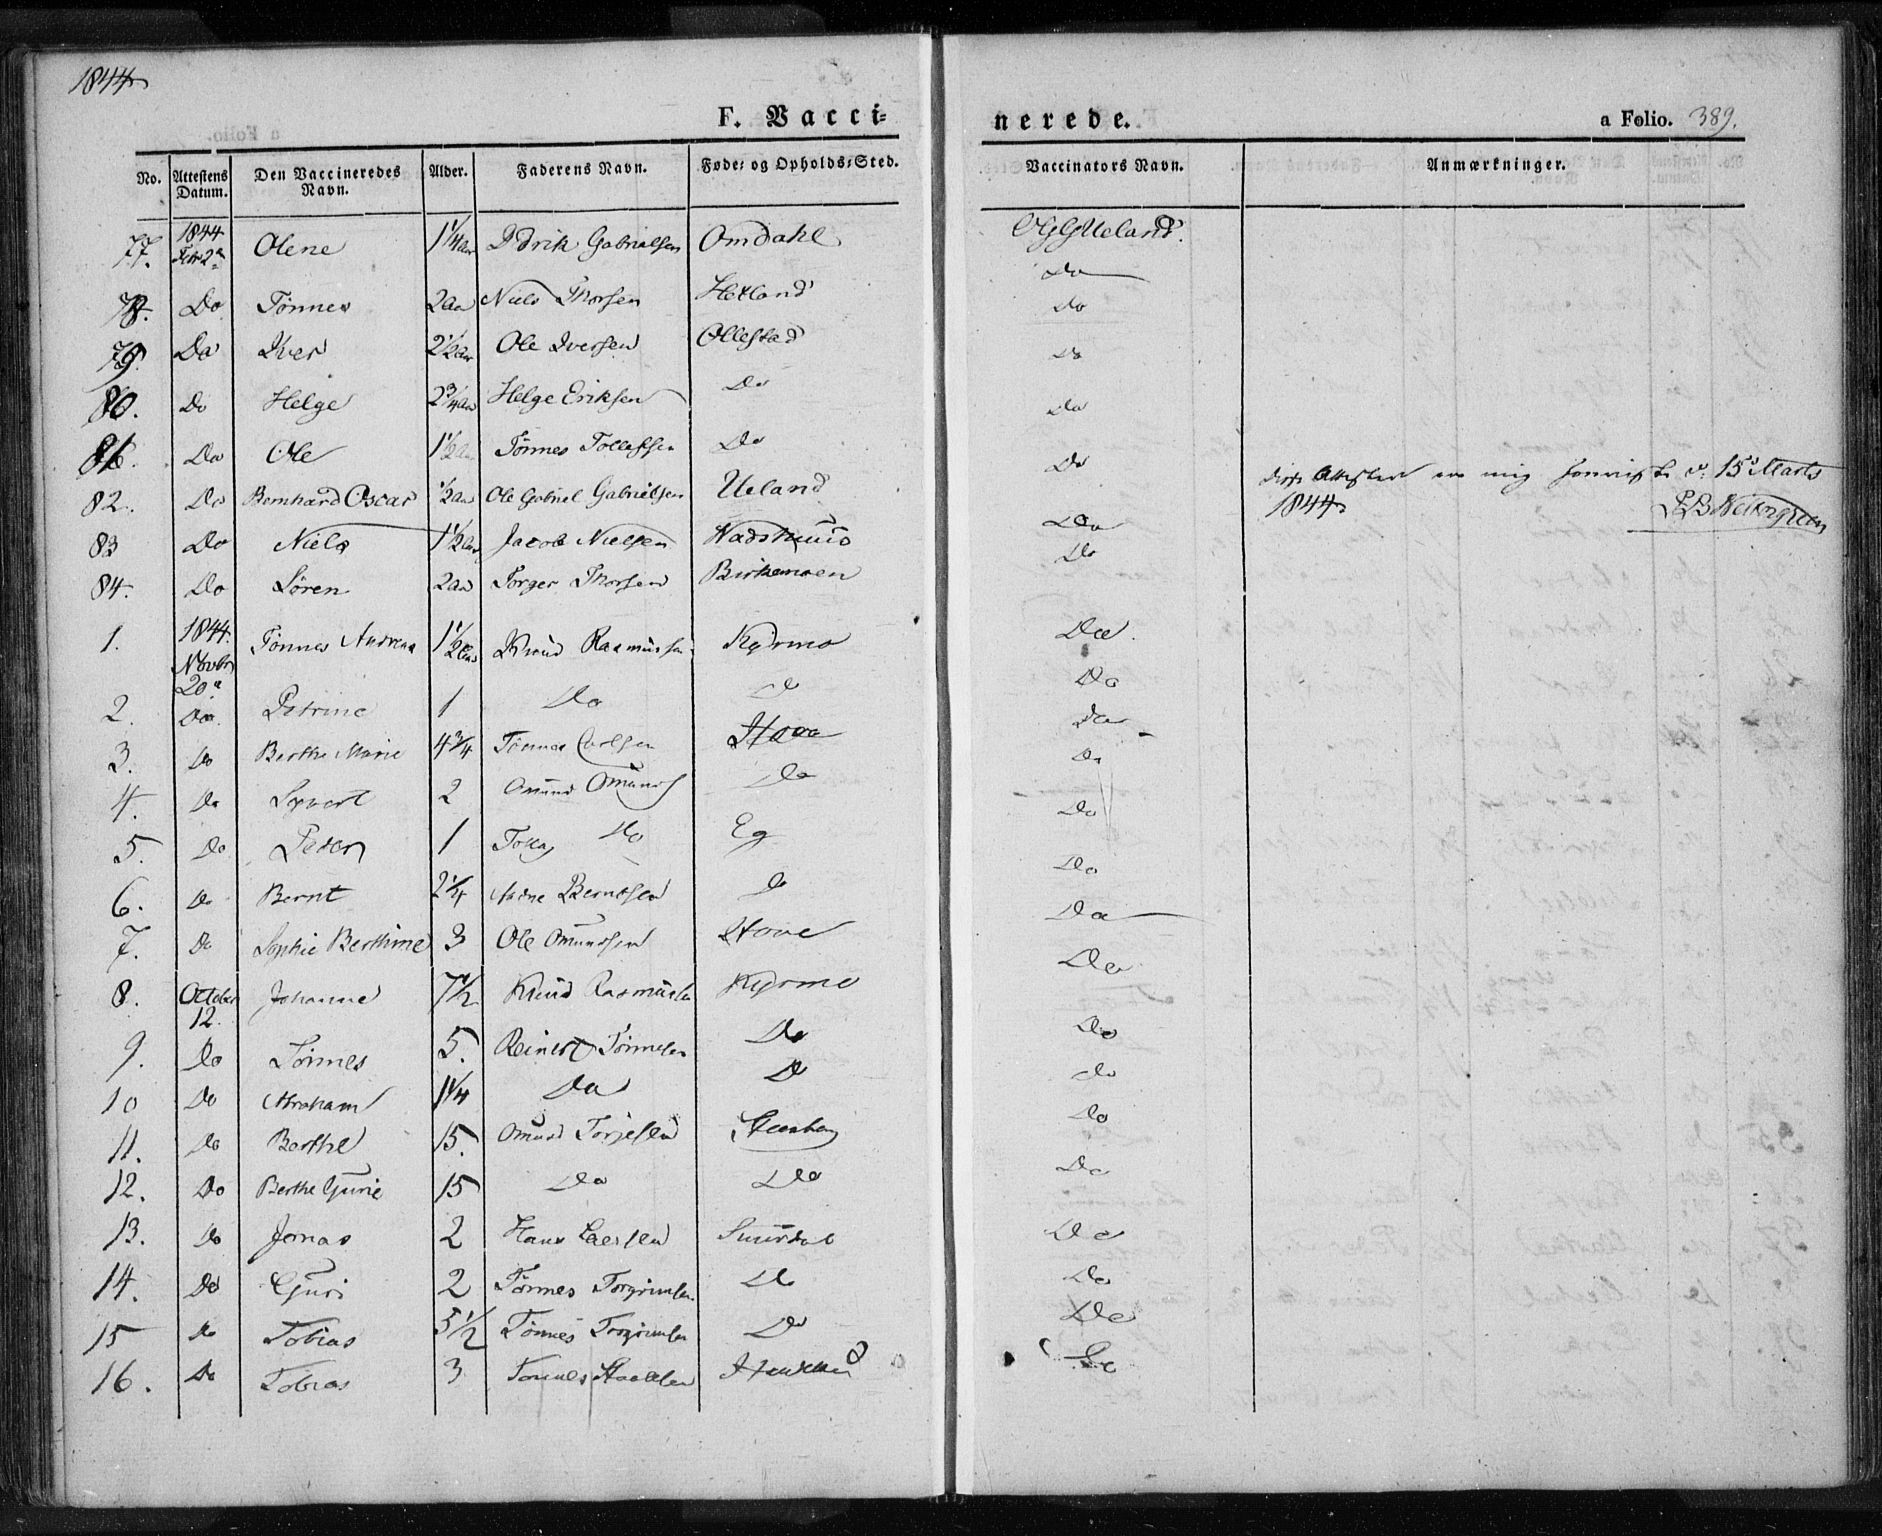 1844
F. Vacci=
nerede.
a Folio. 389.
No. Attestens Datum. Den Vaccineredes Navn. Alder. Faderens Navn. Føde= og Opholds=Sted. Vaccinators Navn. Anmærkninger.
77. 1844 Febr 2 Olene 1 1/4 Aar Didrik Gabrielsen Omdahl OGGUeland.
78. Do Tønnes 2 aar Niels Thorsen Hetland Do
79. Do Iver 2 1/2 aar Ole Iversen Ollestad Do
80. Do Helge 2 3/4 aar Helge Eriksen Do Do
81. Do Ole 1 1/2 aar Tønnes Tollefsen Do Do
82. Do Bernhard Oscar 1/2 aar Ole Gabriel Gabrielsen Ueland Do
15de Marts
1844
83 Do Niels 1 1/2 aar Jacob Nielsen Do
84. Do Søren 2 aar Torger Thorsen Birkemoen Do
1. 1844. Novbr 20 Tønnes Andreas 1 1/2 Aar Knud Rasmussen Kydmo Do.
2. Do Petrine 1 Do Do Do
3. Do Berthe Marie 4 3/4 Tønnes Carlsen Hove Do
4. Do Syvert 2 Omund Omunds Do Do
5. Do Peder 1 Tollag Do Eg Do
6. Do Bernt 2 1/4 Berntsen Do Do
7. Do Sophie Berthine 3 Ole Omundsen Hove Do
8. October 12. Johanne 7 1/2 Knud Rasmussen Kydmo Do
9. Do Tønnes 5. Reinert Tønnesen Do Do
10 Do Abraham 1 1/4 Do Do Do
11. Do Berthe 15. Omund Torjesen Steenberg Do
12. Do Berthe Gurie 15 Do Do Do
13. Do Jonas 2 Hans Larsen Do
14. Do Guri 2 Tønnes Torgrimsen Do Do
15 Do Tobias 5 1/2 Tønnes Torgrimsen Do Do
16. Do Tobias 3 Tønnes Do